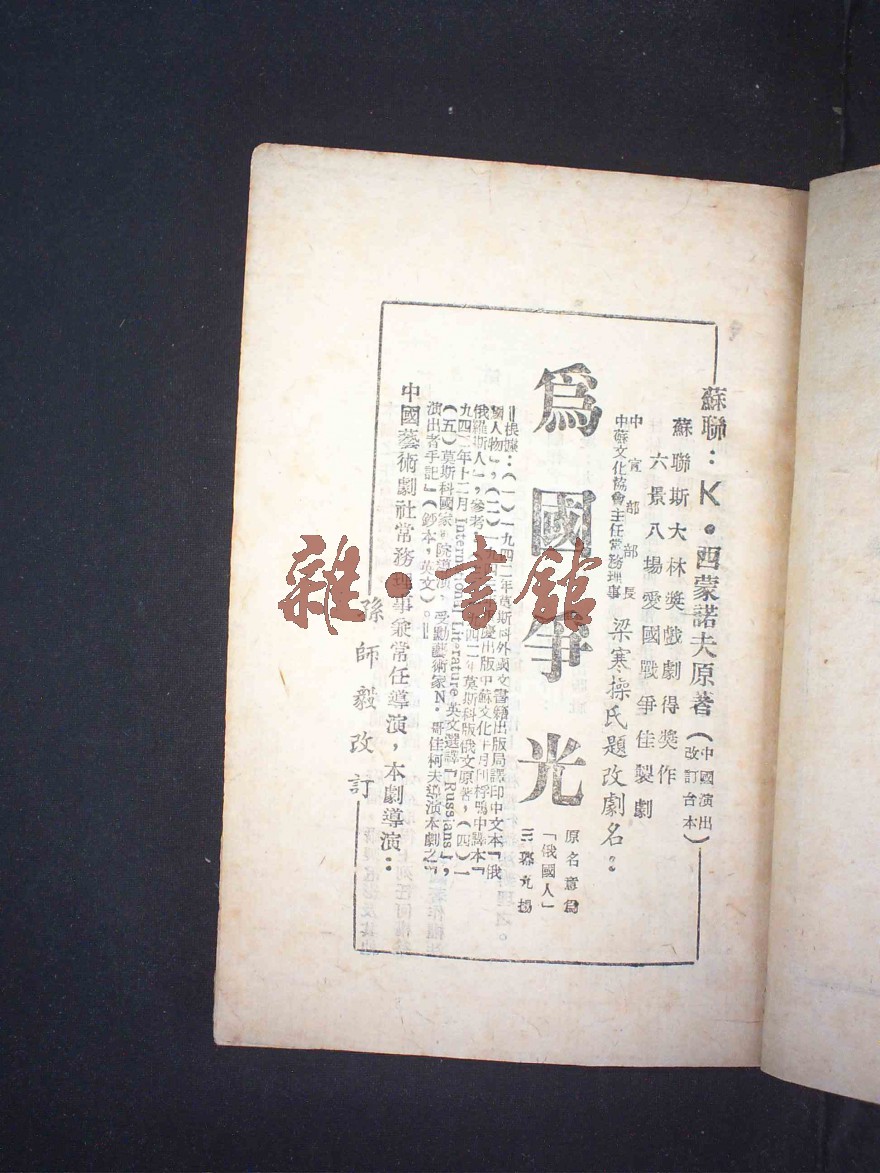 蘇聯：K·西蒙諾夫原著（中國演出改訂台本）
蘇聯斯大林獎戲劇得獎作
六景八場愛國戰爭佳製劇
中宣部部長
中蘇文化協會主任常務理事
梁寒操氏題改劇名：
爲國爭光
原名意爲
「俄國人」
三幕九場
‖根據：（一）一九四二年莫斯科外國文書籍出版局譯印中文本『俄
國人物』，（二）一九 慶出版中蘇文化 月刊桴鳴中譯本『
俄羅斯人』，參考 九四二年莫斯科版俄文原著，（四）一
九四二年十二月 International Literature 英文選譯『Russians』，
（五）莫斯科國家 院導演，受勳藝術家N·哥佳柯夫導演本劇之『
演出者手記』（鈔本，英文）。‖
中國藝術劇社常務理事兼常任導演，本劇導演：
孫師毅改訂
雜·書館